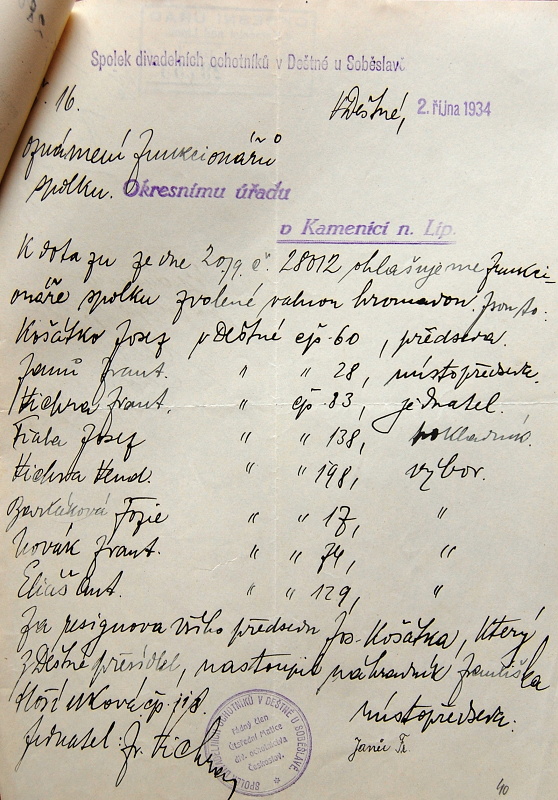 Spolek divadelních ochotníků v Deštné u Soběslavě
č. 16.
V Deštné, 2. října 1934
oznámení funkcionářů
spolku. Okresnímu úřadu
v Kamenici n. Lip.
K dotazu ze dne 20/9 č. 28012 ohlašujeme funkci-
onáře spolku zvolené valnou hromadou. Jsou to:
Košátko Josef v Deštné čp. 60, předseda.
Janů Frant. " " 28, místopředseda.
Tichra Frant. " čp. 83, jednatel.
Fiala Josef " " 138, pokladník.
Tichra Hend. " " 198, výbor.
Žofie " " 17, "
Novák Frant. " " 74, "
Eliáš Ant. " " 129, "
Za resignovavšího předsedu Jos. Košátka, který
z Deštné přesídlel, nastoupil náhradník Františka
čp. 118.
místopředseda.
Jednatel: Fr. Tichra
Janů Fr.
SPOLEK DIVADELNÍCH OCHOTNÍKŮ V DEŠTNÉ U SOBĚSLAVĚ
řádný člen
Ústřední Matice
div. ochotnictva
Českoslov.
40